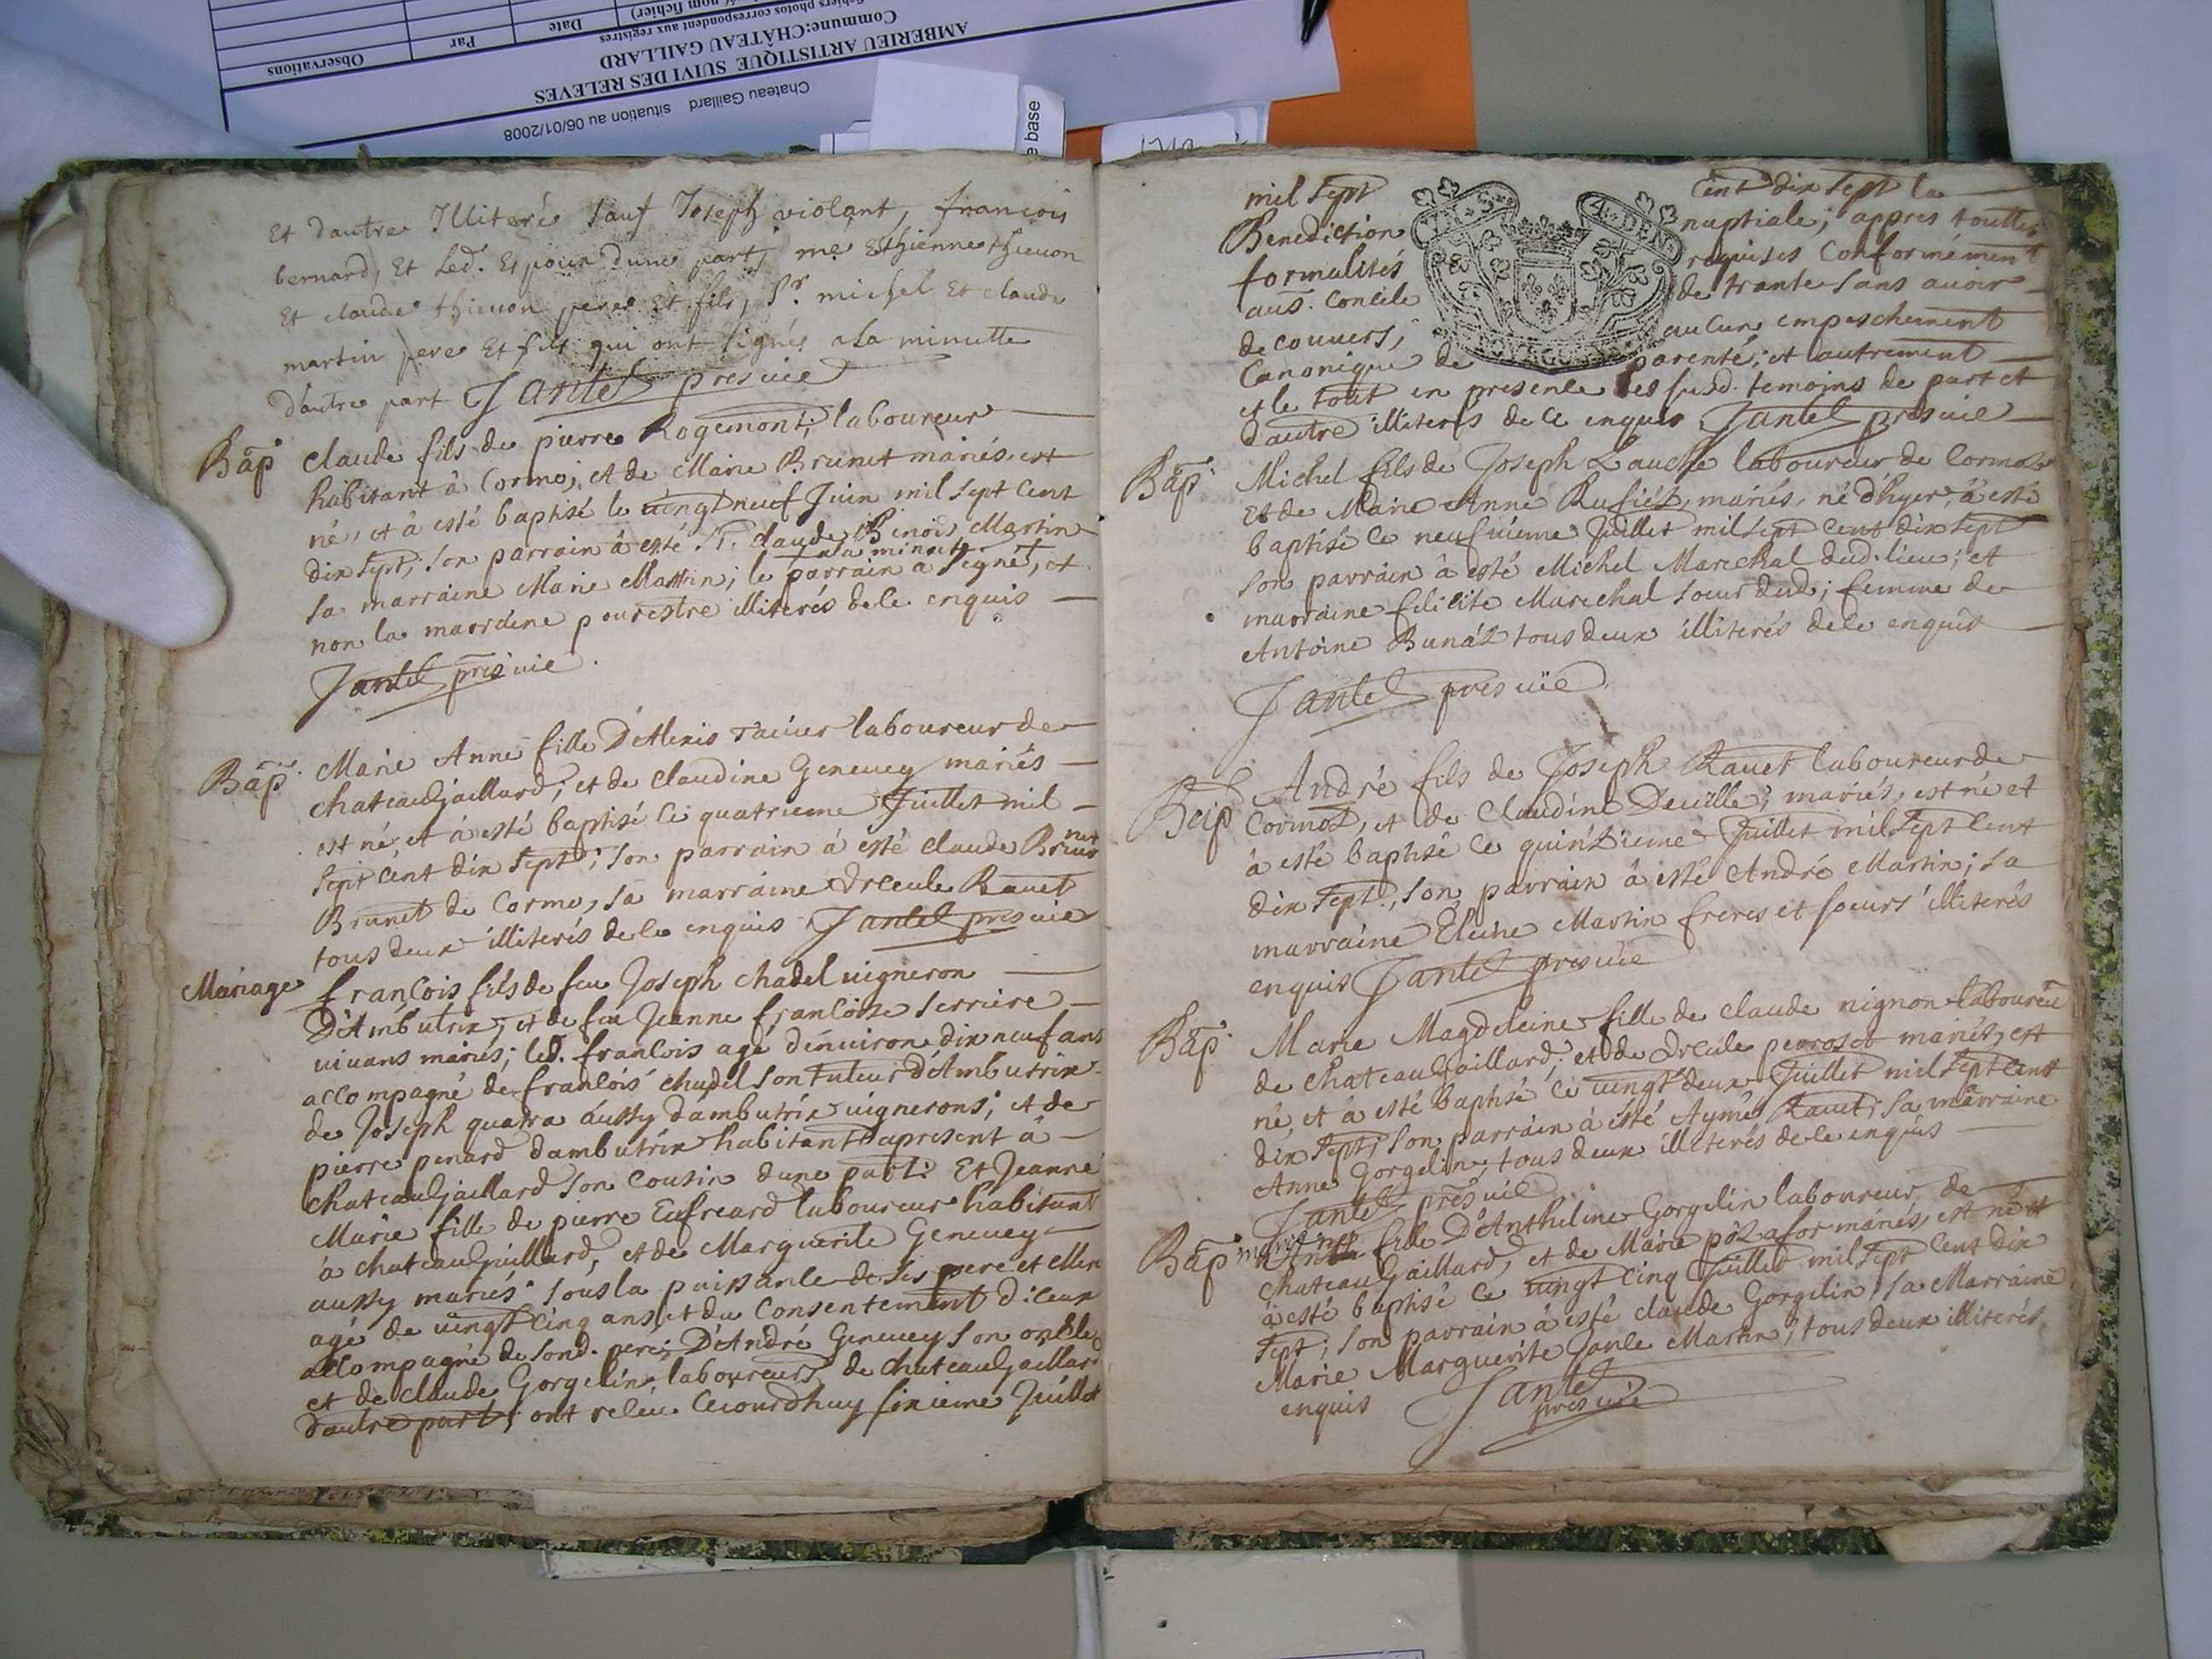 Chateau Gaillard situation au 06/01/2008
AMBERIEU ARTISTIQUE SUIVI DES RELEVES
Commune:CHÂTEAU GAILLARD
fichiers photos correspondent aux registres
nom fichier)
Date
Par
Observations
e base
Et dautre Illiteré sauf Joseph violant, francois
bernard, Et led. Espoux dune part, me Esthienne thieuon
Et claude thieuon pere Et fils, Sr. michel Et claude
martin pere Et fils qui ont signés a la minutte
dautre part Jantel pres vic
Bap claude fils de pierre Rogemont, laboureur
habitant à Cormo, et de Marie Brunet mariés, est
né, et à esté baptisé le vingt neuf Juin mil sept cent
dix sept, son parrain à esté Sr. claude Benoist Martin
a la minute
sa marraine Marie Martin; le parrain a signé, et
non la marraine pour estre illiterés de ce enquis
Jantel pres vic
Bap Marie Anne fille D'Alexis racier laboureur de
chateauGaillard, et de claudine Geneuey mariés
est né, et à esté baptisé le quatrieme Juillet mil
sept cent dix sept; son parrain à esté claude
Brunet de Cormo, sa marraine Vrcule Rauet
tous deux illiterés de ce enquis Jantel pres vic
Mariage françois fils de feu Joseph chadel uigneron
D'Ambutrix, et de feu Jeanne françoise serriere
uiuans mariés; led. francois agé d'enuiron dix neuf ans
accompagné de francois chadel son tuteur d'Ambutrix
de Joseph quatra aussy dambutrix uignerons; et de
pierre penard dambutrix habitant apresent à
chateauGaillard son cousin dune part: Et Jeanne
Marie fille de pierre Eufreard laboureur habitant
à chateauGaillard, et de Marguerite Geneuey
aussy mariés sous la puissance de ses pere et Mere
agé de vingt cinq ans, et du consentement d'iceux
accompagné de sond. pere; D'André Geneuey son oncle
et de claude Gorgelin, laboureurs de chateauGaillard
d'autre part; ont receu cejourdhuy sixieme Juillet
mil sept cent dix sept la
Benediction nuptiale; appres touttes
formalités requises Conformément
aus. Concile de trante sans auoir
decouuers, aucune empeschement
Canonique de parenté, et autrement
et le tout en presence des susd. temoins de part et
d'autre illiterés de ce enquis Jantel pres vic
Bap Michel fils de Joseph Lauche laboureur de Cormoz
et de Marie Anne Rufiéz, mariés, né d'hyer, à esté
baptisé le neufuieme Juillet mil sept cent dix sept
son parrain à esté Michel Marechal dud. lieu; et
marraine felicite Marechal soeur dud; femme de
Antoine Bunáz tous deux illiterés de ce enquis
Jantel pres vic
Bap André fils de Joseph Rauet laboureur de
Cormoz, et de Claudine Deuille; mariés, est né et
à esté baptisé le quinzieme Juillet mil sept cent
dix sept, son parrain à esté André Martin; sa
marraine Eleine Martin freres et soeurs illiterés
enquis Jantel pres vic
Bap Marie Magdeleine fille de claude nignon laboureu
de chateauGaillard; et de Vrcule perroset mariés, est
né, et à esté baptisé le vingt deux Juillet mil sept cent
dix sept; son parrain à esté Aymé Rauet; sa marraine
Anne Gorgelin, tous deux illiterés de ce enquis
Jantel pres vic
Bap fille D'Anthelme Gorgelin laboureur de
chateauGaillard, et de Marie pózafor mariés, est né et
à esté baptisé le vingt cinq Juillet mil sept cent dix
sept; son parrain à esté claude Gorgelin, sa Marraine
Marie Marguerite Martin, tous deux illiterés
enquis Jantel
pres vic